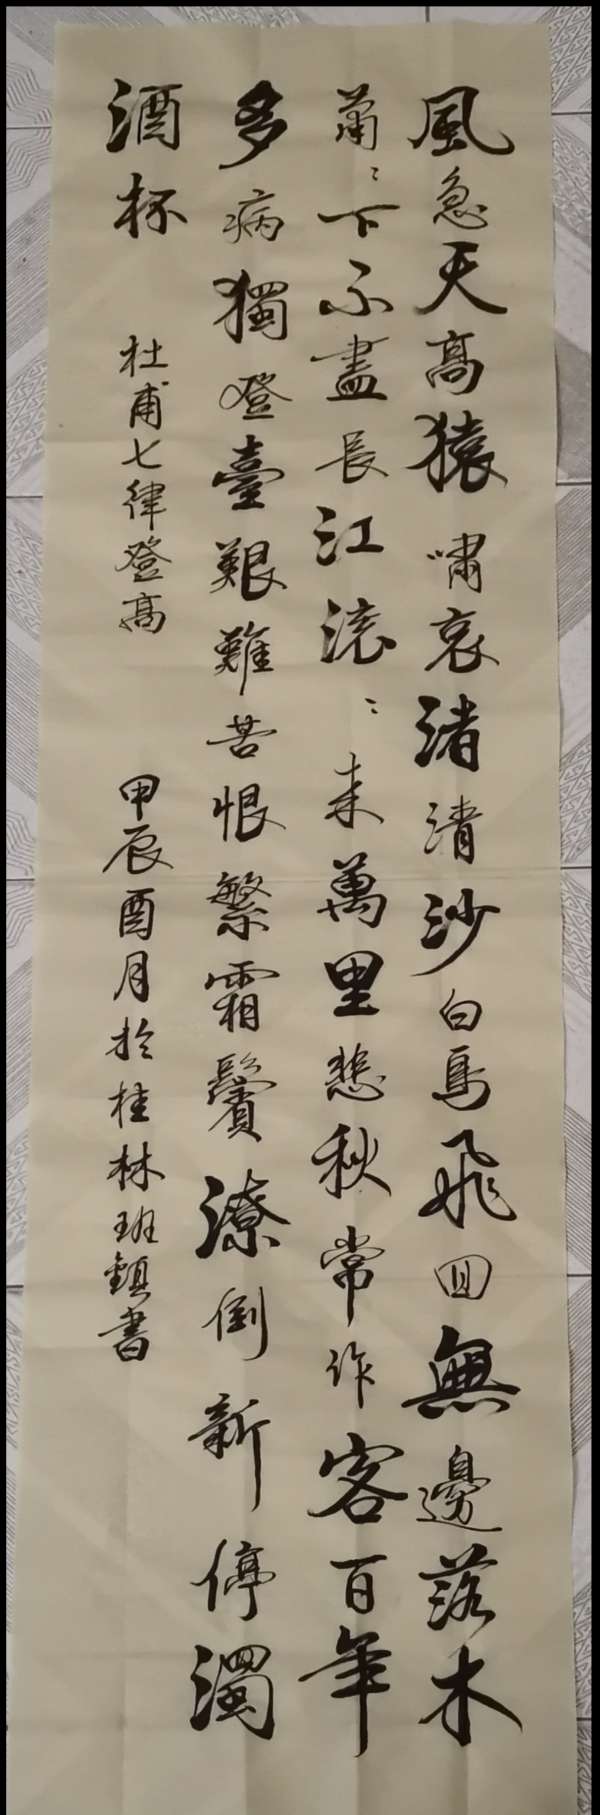 風急天高猿嘯哀渚清沙白鳥飛回無邊落木
蕭〻下不盡長江滾〻来萬里悲秋常作客百年
多病獨登臺艱難苦恨繁霜鬢潦倒新停濁
酒杯
杜甫七律登高
甲辰酉月於桂林班鎮書